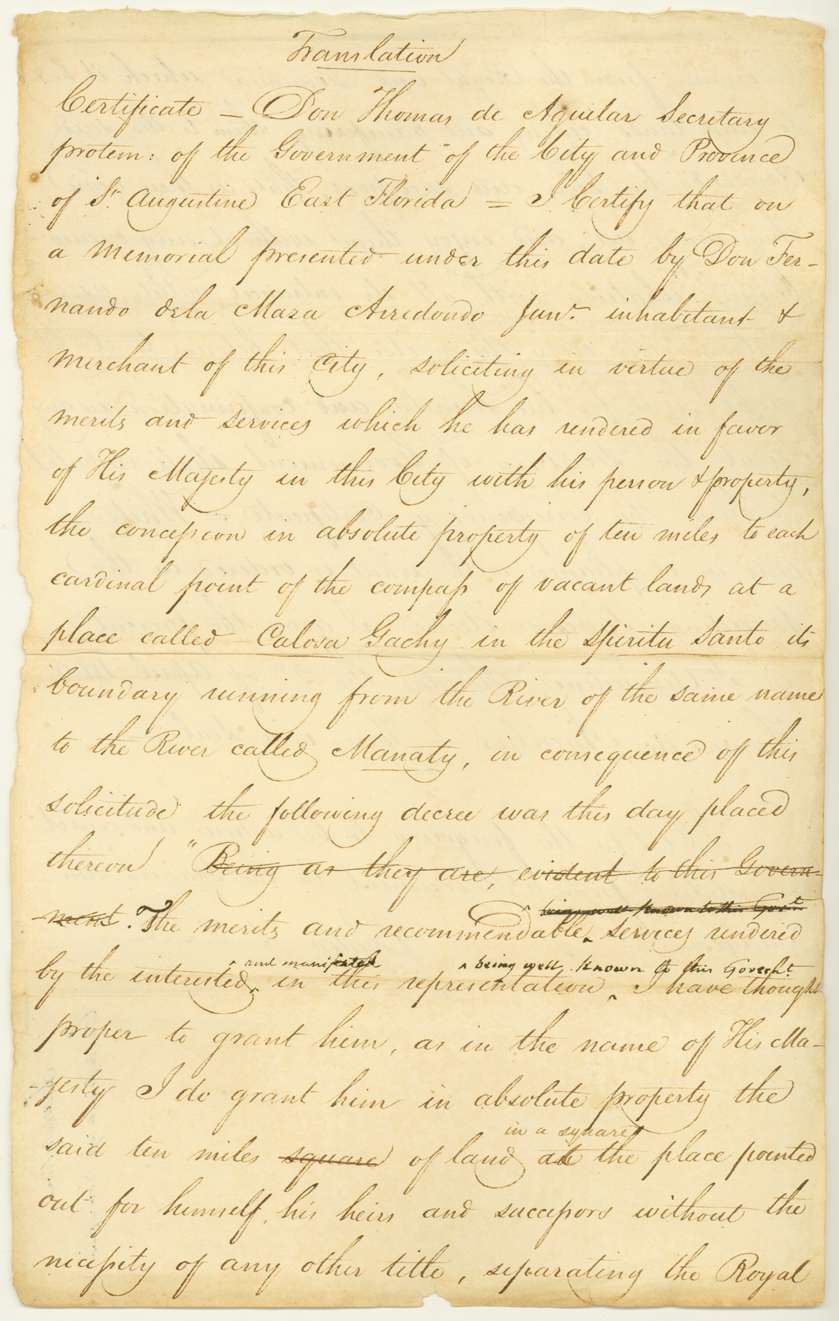 Translation
Certificate — Don Thomas de Aguilar Secretary
protem: of the Government of the City and Province
of St Augustine East Florida = I Certify that on
a memorial presented under this date by Don Fer-
nando dela Maza Arredondo Junr. inhabitant &
merchant of this City, soliciting in virtue of the
merits and services which he has rendered in favor
of His Majesty in this City with his person & property,
the concession in absolute property of ten miles to each
cardinal point of the compass of vacant lands at a
place called Calosa Gachy in the Spiritu Santo its
boundary running from the River of the same name
to the River called Manaty, in consequence of this
solicitude the following decree was this day placed
thereon "Being as they are, evident to this Govern-
being well known to this Govt
ment. The merits and recommendable services rendered
and manifested being well known to this Governt.
by the interested, in this representation, I have thought
proper to grant him, as in the name of His Ma-
jesty I do grant him in absolute property the
in a square
said ten miles square of land at the place pointed
out for himself, his heirs and successors without the
necessity of any other title, separating the Royal